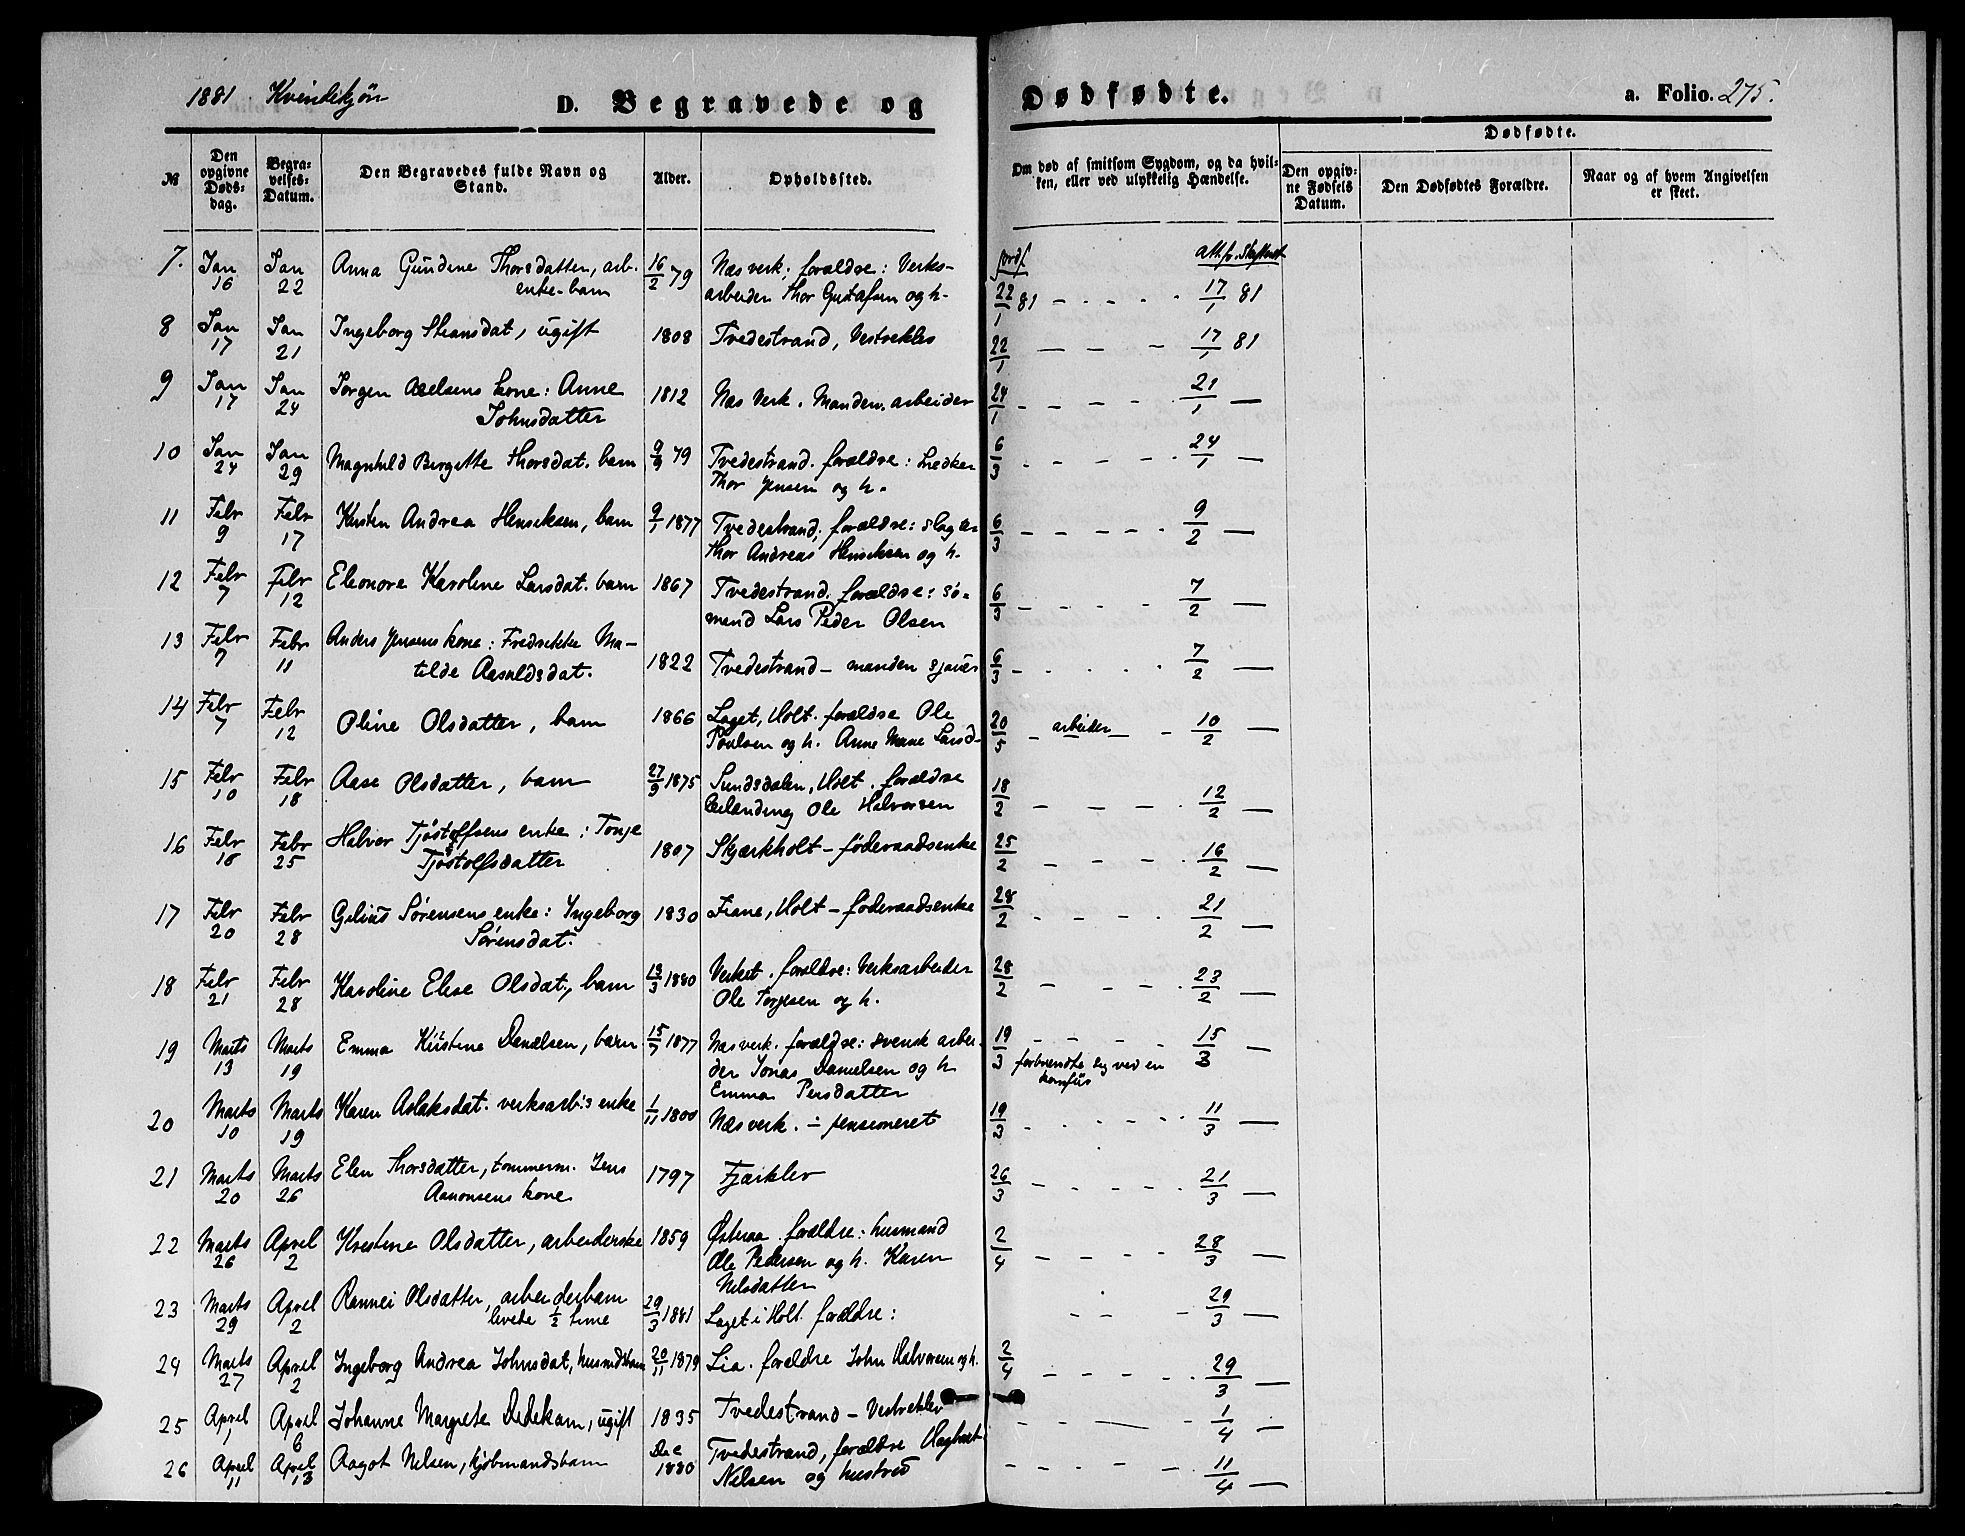 1881 Kvindekjøn D. Begravede og Dødfødte. a. Folio. 275.
№ Den opgivne Døds-dag. Begra-velses-Datum. Den Begravedes fulde Navn og Stand. Alder. Opholdssted. Om død af smitsom Sygdom, og da hvil-ken, eller ved ulykkelig Hændelse. Dødfødte. Den opgiv-ne Fødsels Datum. Den Dødfødtes Forældre. Naar og af hvem Angivelsen er skeet.
jordf. att. fr. Skifteret
7. Jan 16 Jan 22 Anna Gundine Thorsdatter, arb. 16/2 79 Næs verk; forældre: Verks-
enke-barn arbeider Thor Gustafsen og h. 22/1 81 - - - - 17/1 81
8 Jan 17 Jan 21 Ingeborg Steansdat, ugift 1808 Tvedestrand, Vestreklev 22/1 — — - 17/1 81
9 Jan 17 Jan 24 Jørgen Axelsens kone: Anne 1812 Næs Verk. Manden arbeider 24/1 - - - - 21/1 —
Johnsdatter
10 Jan 24 Jan 29 Magnhild Birgitte Thorsdat. barn 9/9 79 Tvedestrand. forældre: snedker 6/3 - - - - 24/1 —
Thor Jensen og h.
11 Febr 9 Febr 17 Kirsten Andrea Henriksen, barn 9/1 1877 Tvedestrand; forældre: slagter 6/3 - - - - 9/2 —
Thor Andreas Henriksen og h.
12 Febr 7 Febr 12 Eleonore Karoline Larsdat. barn 1867 Tvedestrand. forældre: sø- 6/3 - - - - 7/2 —
mand Lars Peder Olsen
13 Febr 7 Febr 11 Anders Jensens kone: Fredrikke Ma-
tilde Aasuldsdat. 1822 Tvedestrand – manden sjauer 6/3 - - - - 7/2 —
14 Febr 7 Febr 12 Oline Olsdatter, barn 1866 Laget, Holt. forældre Ole
Poulsen og h. Anne Marie Larsd- 20/5 - arbeider - 10/2 —
15 Febr 10 Febr 18 Aase Olsdatter, barn 27/9 1875 Sundsdalen, Holt. forældre 18/2 - - - 12/2 —
leilænding Ole Halvorsen
16 Febr 18 Febr 25 Halvor Tjøstolfsens enke: Tonje
Tjøstolfsdatter 1807 Skjærkholt – føderaadsenke 25/2 - - - 16/2 —
17 Febr 20 Febr 28 Gelius Sørensens enke: Ingeborg 1830 Fiane, Holt – føderaadsenke 28/2 - - - - 21/2 —
Sørensdat.
18 Febr 21 Febr 28 Karoline Elise Olsdat., barn 13/3 1880 Verket. forældre: Verksarbeider 28/2 - - - 23/2 —
Ole Torjesen og h.
19 Marts 13 Marts 19 Emma Kirstine Danielsen, barn 15/7 1877 Næsverk. forældre: svensk arbei- 19/3 - - - - 15/3 —
der Jonas Danielsen og h. forbrændte sig ved en
Emma Persdatter komfür
20 Marts 10 Marts 19 Karen Aslaksdat. verksarb:s enke 1/11 1800 Næs verk. – pensioneret 19/3 - - - - 11/3 —
21 Marts 20 Marts 26 Elen Thorsdatter, tømmerm. Jens 1797 Fjærklev 26/3 - - - - 21/3 —
Aanonsens kone
22 Marts 26 April 2 Kirstine Olsdatter, arbeiderske 1859 Østeraa. forældre: husmand 2/4 - - - - 28/3 —
Ole Pedersen og h. Karen
Nilsdatter
23 Marts 29 April 2 Rannei Olsdatter, arbeiderbarn 29/3 1881 Laget i Holt. forældre: - - - 29/3 —
levede 1/2 time
24 Marts 27 April 2 Ingeborg Andrea Johnsdat, husmdsbarn 20/11 1879 Lia. forældre John Halvorsen og h. 2/4 - - - - 29/3 —
25 April 1 April 6 Johanne Margrete Dedekam, ugift 1835 Tvedestrand – Vestreklev - - — - 1/4 -
26 April 11 April 13 Aagot Nilsen, kjøbmandsbarn Dec 1880 Tvedestrand, forældre Hagbart - - - - 11/4 —
Nilsen og hustrü